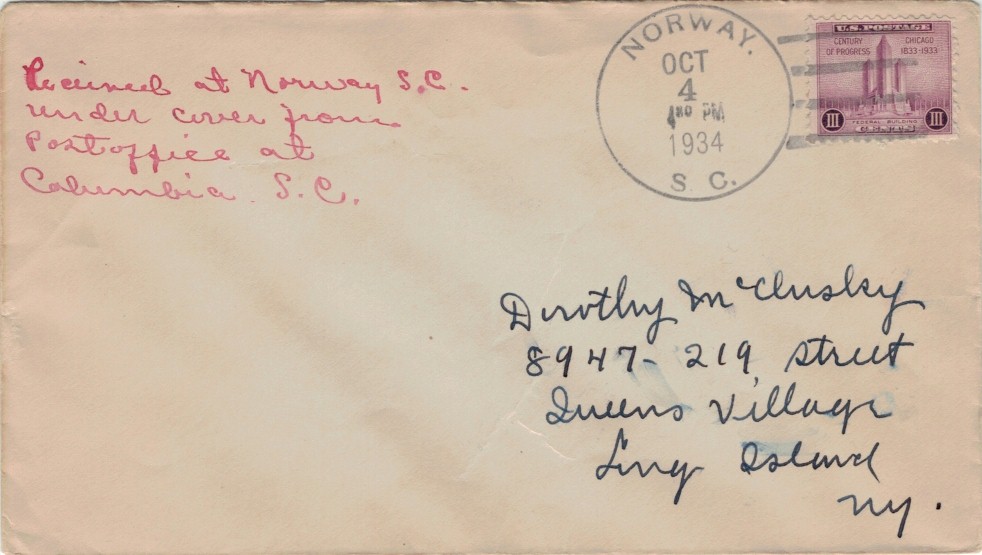 Received at Norway S.C.
under cover from
Postoffice at
Columbia S.C.
NORWAY.
OCT
4
430 PM
1934
S C.
U.S. POSTAGE
CENTURY OF PROGRESS
CHICAGO 1833-1933
III
FEDERAL BUILDING
III
Dorothy McClusky
8947- 219 street
Queens Village
Long Island
NY.